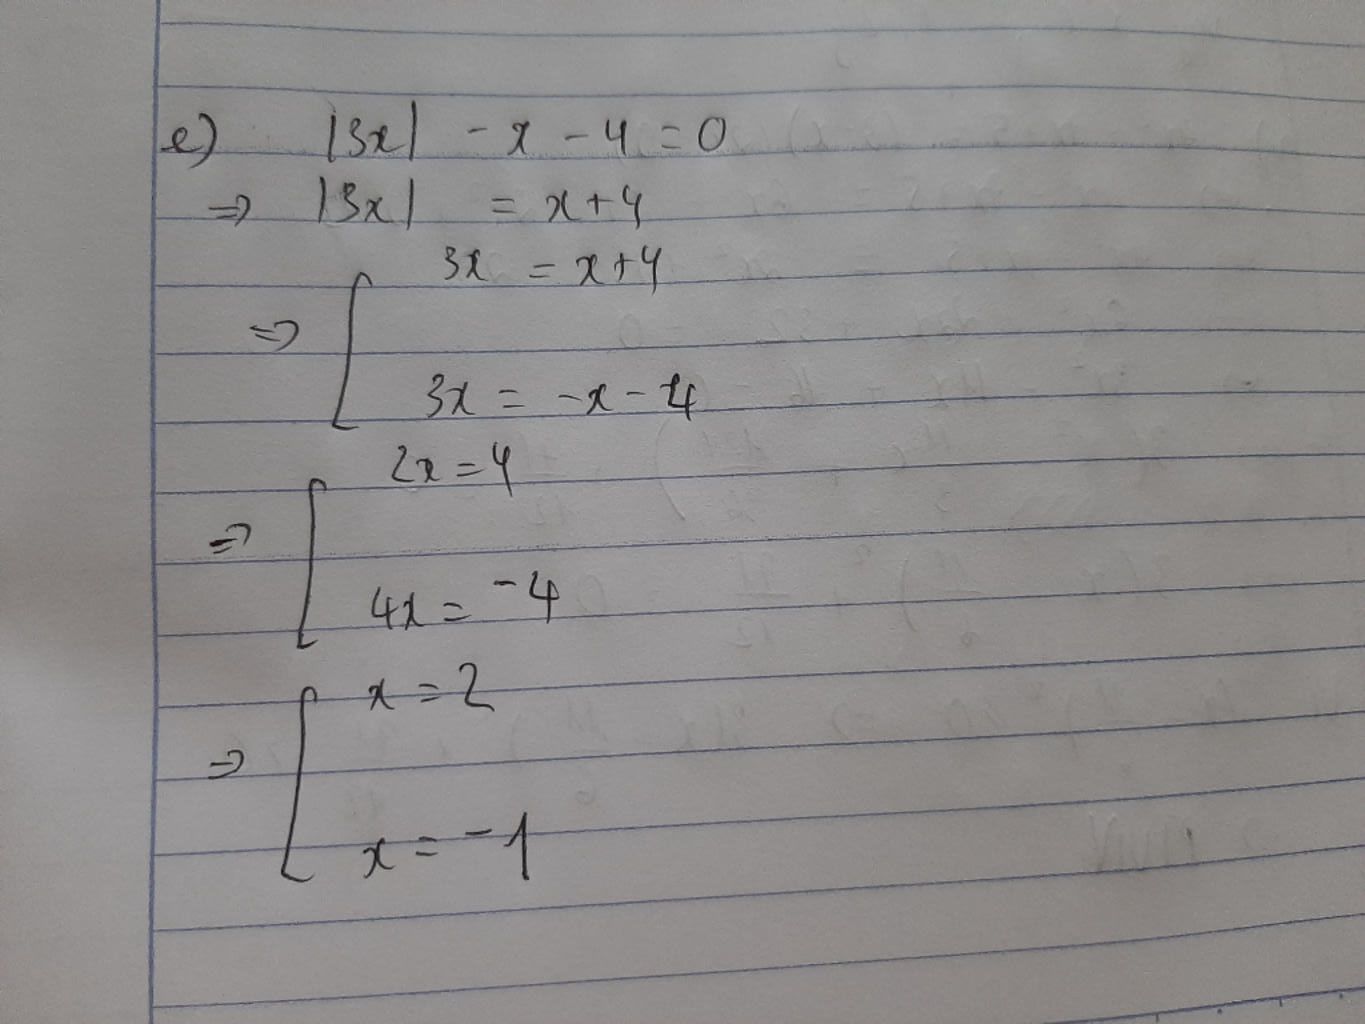 e) |3x| - x - 4 = 0
⇒ |3x| = x + 4
3x = x + 4
⇒ [
3x = -x - 4
2x = 4
⇒ [
4x = -4
x = 2
⇒ [
x = -1